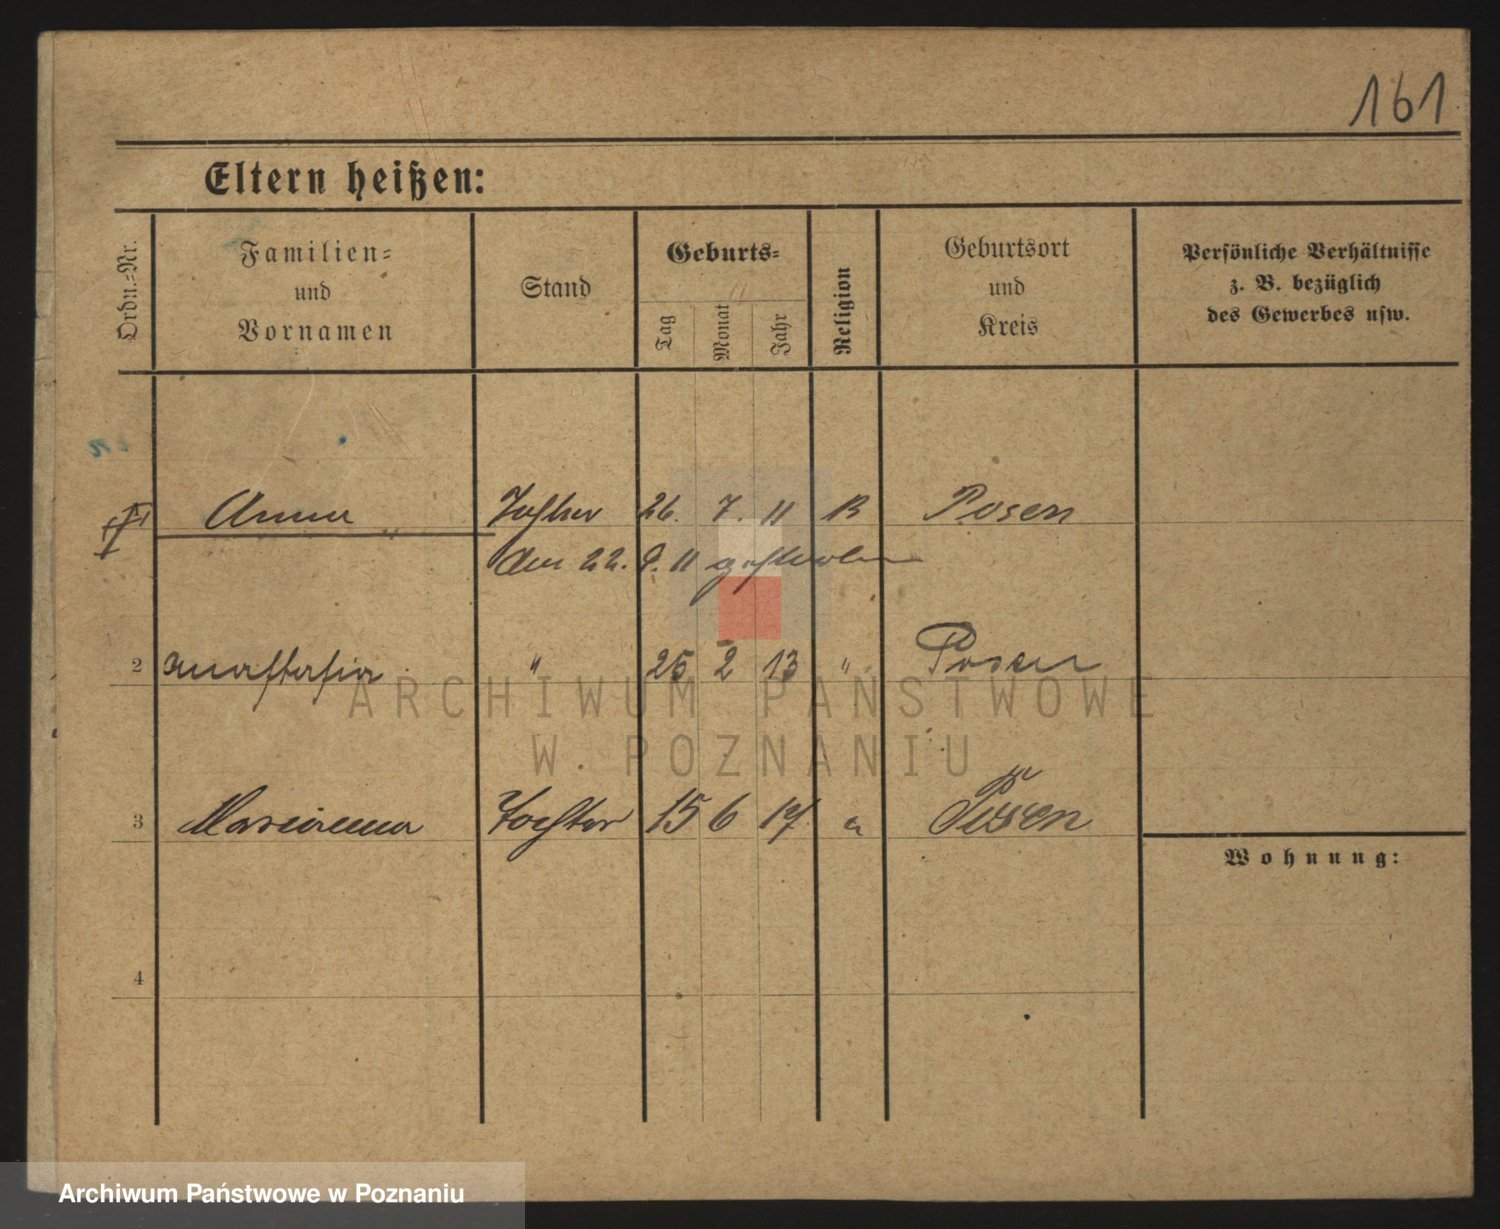 161
Eltern heißen:
Ordn.-Nr.
Familien-
und
Vornamen
Stand
Geburts-
Tag
Monat
Jahr
Religion
Geburtsort
und
Kreis
Persönliche Verhältnisse
z. B. bezüglich
des Gewerbes usw.
Anna Tochter 26. 7. 11 K Posen
Am 22. 9. 11 gestorben
2 Anastasia " 25 2 13 " Posen
ARCHIWUM PAŃSTWOWE
W POZNANIU
3 Marianna Tochter 15 6 17 Posen
Wohnung:
4
Archiwum Państwowe w Poznaniu